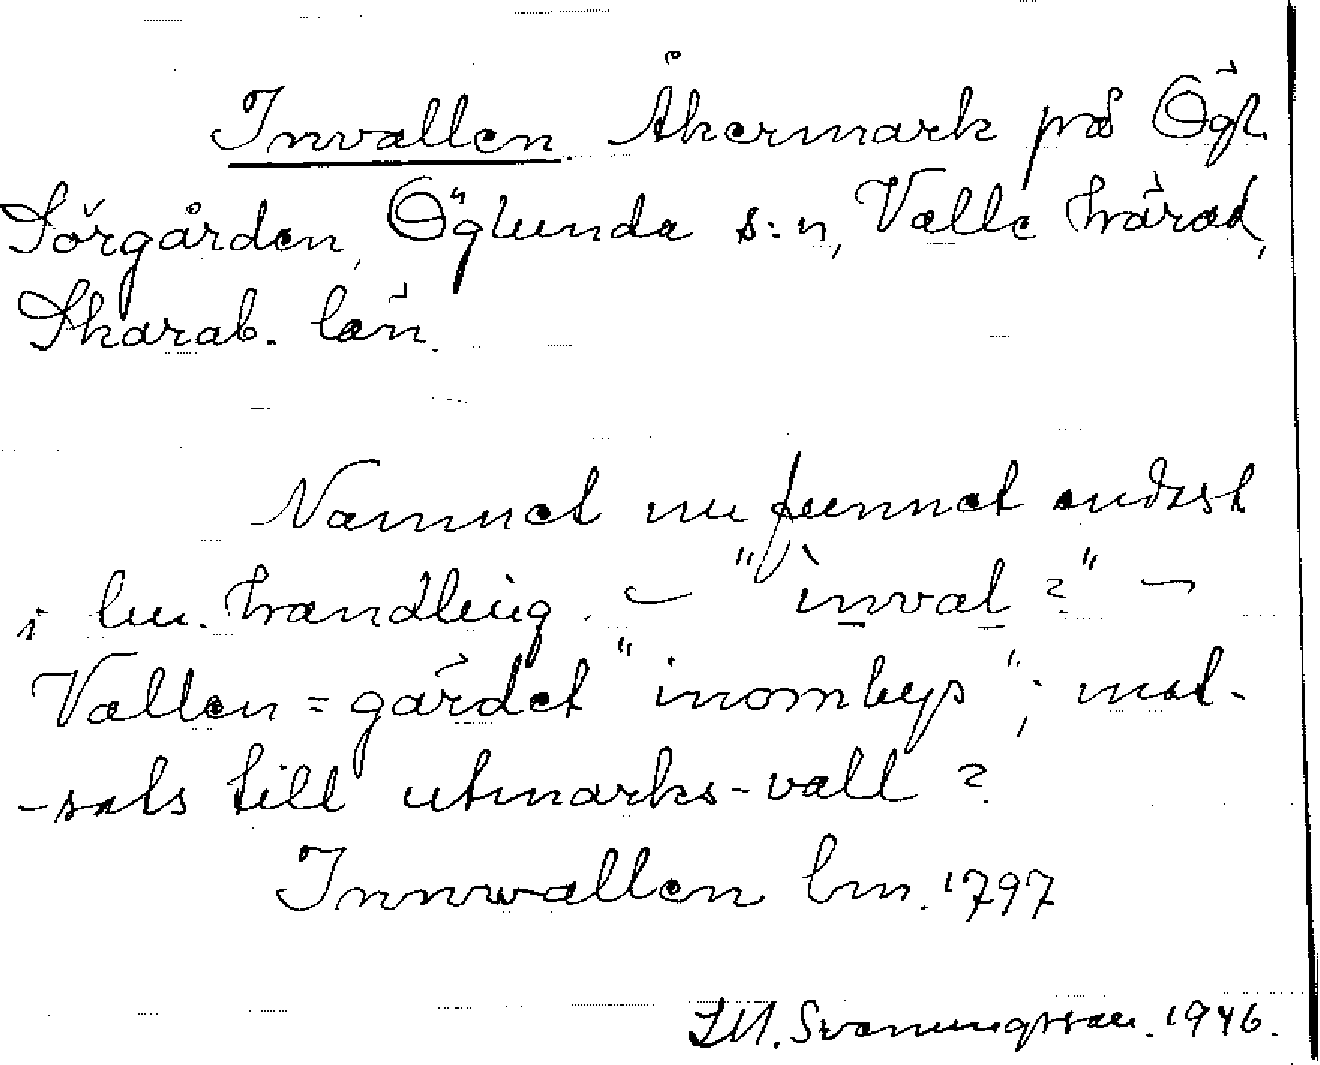 Invallen. Åkermark på Ögl.
Sörgården, Öglunda s:n, Valle härad,
Skarab. län.
Namnet nu funnet endast
i lm. handling. – "ìnval ?" –
Vallen = gärdet "inombys"; mot-
-sats till utmarks-vall ?
Innwallen lm. 1797
Svanungsson. 1946.